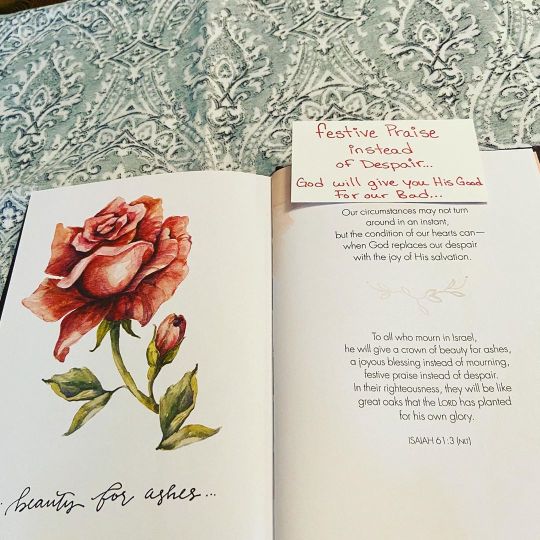 festive Praise
instead
of Despair...
God will give you His Good
For our Bad...
Our circumstances may not turn
around in an instant,
but the condition of our hearts can—
when God replaces our despair
with the joy of His salvation.
To all who mourn in Israel,
he will give a crown of beauty for ashes,
a joyous blessing instead of mourning,
festive praise instead of despair.
In their righteousness, they will be like
great oaks that the LORD has planted
for his own glory.
ISAIAH 61:3 (NLT)
...beauty for ashes...